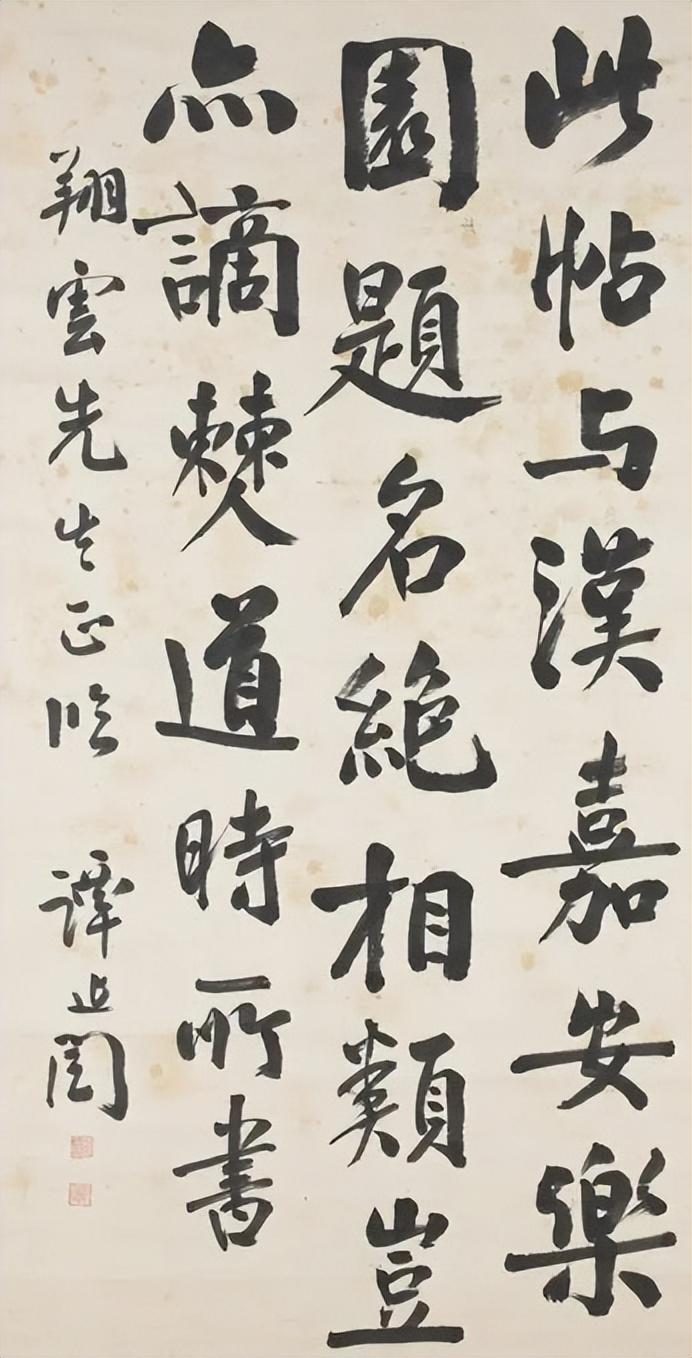 此帖与漢嘉安樂
園題名絶相類豈
亦謫僰道時所書
翔雲先生正臨
譚延闓